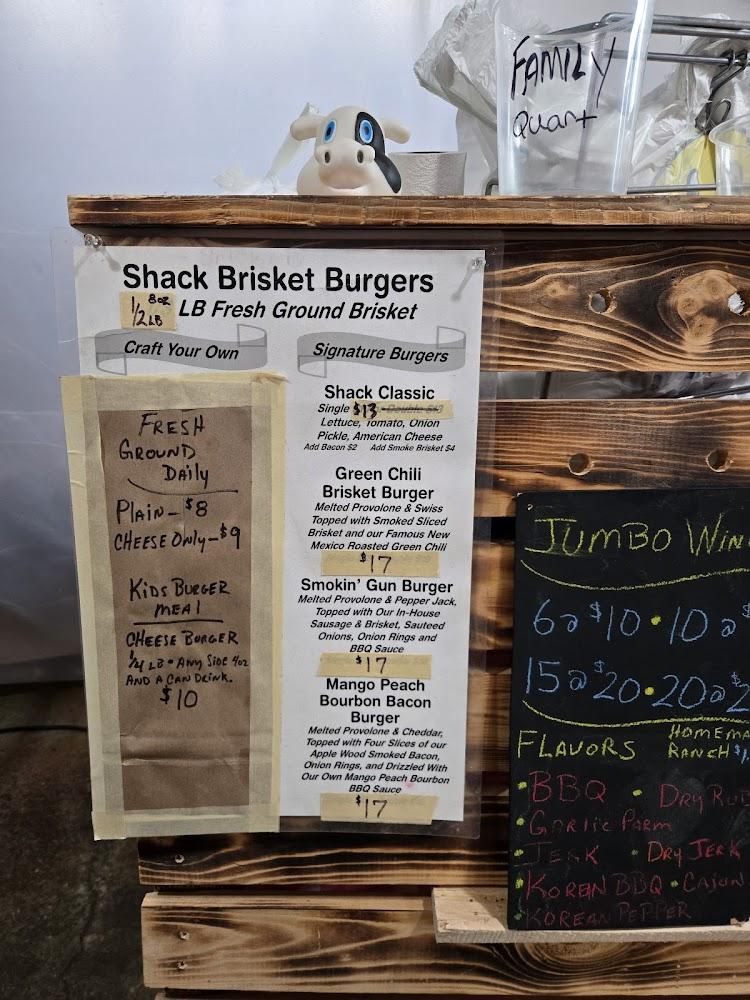 FAMILY
Quart
Shack Brisket Burgers
1/2 LB 8oz LB Fresh Ground Brisket
Craft Your Own
FRESH
GROUND
DAILY
PLAIN - $8
CHEESE ONLY - $9
KIDS BURGER
MEAL
CHEESE BURGER
1/4 LB • ANY SIDE 4oz
AND A CAN DRINK.
$10
Signature Burgers
Shack Classic
Single $13 Double
Lettuce, Tomato, Onion
Pickle, American Cheese
Add Bacon $2 Add Smoke Brisket $4
Green Chili
Brisket Burger
Melted Provolone & Swiss
Topped with Smoked Sliced
Brisket and our Famous New
Mexico Roasted Green Chili
$17
Smokin' Gun Burger
Melted Provolone & Pepper Jack,
Topped with Our In-House
Sausage & Brisket, Sauteed
Onions, Onion Rings and
BBQ Sauce
$17
Mango Peach
Bourbon Bacon
Burger
Melted Provolone & Cheddar,
Topped with Four Slices of our
Apple Wood Smoked Bacon,
Onion Rings, and Drizzled With
Our Own Mango Peach Bourbon
BBQ Sauce
$17
JUMBO WIN
6 @ $10 • 10 @ $
15 @ $20 • 20 @ $2
FLAVORS
HOMEMA
RANCH $1.
• BBQ • DRY RUB
• Garlic Parm
• JERK • DRY JERK
• KOREAN BBQ • CAJUN
• KOREAN PEPPER